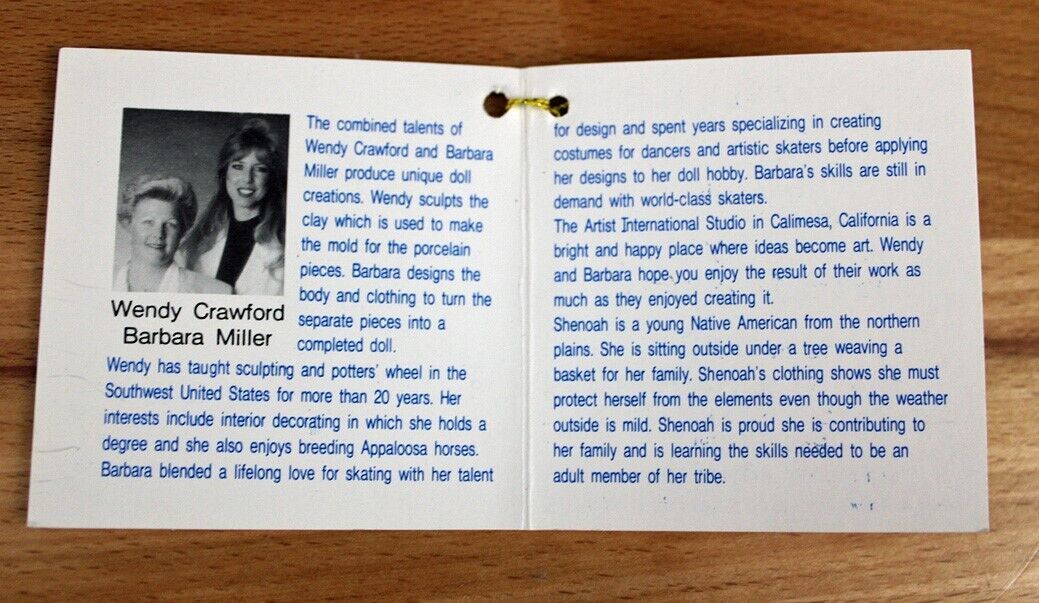 The combined talents of
Wendy Crawford and Barbara
Miller produce unique doll
creations. Wendy sculpts the
clay which is used to make
the mold for the porcelain
pieces. Barbara designs the
body and clothing to turn the
separate pieces into a
completed doll.
Wendy Crawford
Barbara Miller
Wendy has taught sculpting and potters' wheel in the
Southwest United States for more than 20 years. Her
interests include interior decorating in which she holds a
degree and she also enjoys breeding Appaloosa horses.
Barbara blended a lifelong love for skating with her talent
for design and spent years specializing in creating
costumes for dancers and artistic skaters before applying
her designs to her doll hobby. Barbara's skills are still in
demand with world-class skaters.
The Artist International Studio in Calimesa, California is a
bright and happy place where ideas become art. Wendy
and Barbara hope you enjoy the result of their work as
much as they enjoyed creating it.
Shenoah is a young Native American from the northern
plains. She is sitting outside under a tree weaving a
basket for her family. Shenoah's clothing shows she must
protect herself from the elements even though the weather
outside is mild. Shenoah is proud she is contributing to
her family and is learning the skills needed to be an
adult member of her tribe.